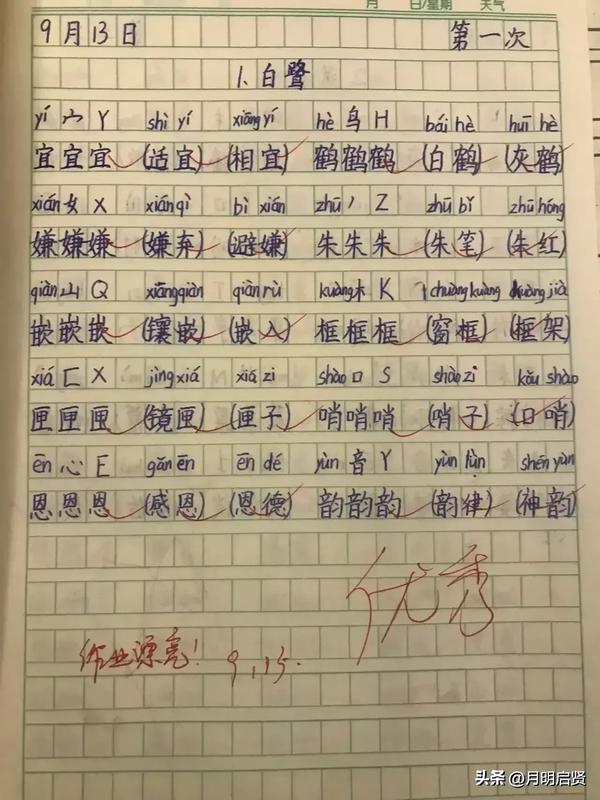 月 日/星期 天气
9月13日 第一次
1.白鹭
yí 宀 Y shì yí xiāng yí hè 鸟 H bái hè huī hè
宜宜宜 (适宜) (相宜) 鹤鹤鹤 (白鹤) (灰鹤)
xián 女 X xián qì bì xián zhū 丿 Z zhū bǐ zhū hóng
嫌嫌嫌 (嫌弃) (避嫌) 朱朱朱 (朱笔) (朱红)
qiàn 山 Q xiāng qiàn qiàn rù kuàng 木 K chuàng kuàng kuàng jià
嵌嵌嵌 (镶嵌) (嵌入) 框框框 (窗框) (框架)
xiá 匚 X jìng xiá xiá zi shào 口 S shào zi kǒu shào
匣匣匣 (镜匣) (匣子) 哨哨哨 (哨子) (口哨)
ēn 心 E gǎn ēn ēn dé yùn 音 Y yùn lǜn shén yùn
恩恩恩 (感恩) (恩德) 韵韵韵 (韵律) (神韵)
优秀
作业漂亮! 9.15.
头条 @月明启贤